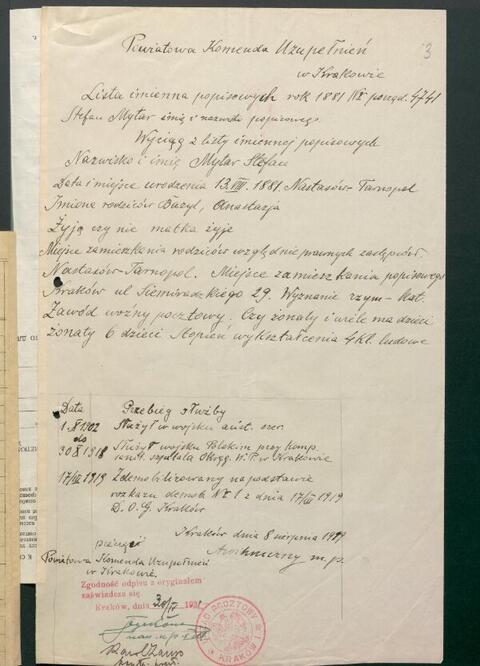 3
Powiatowa Komenda Uzupełnień
w Krakowie
Lista imienna popisowych rok 1881 porząd. 4741
Stefan Mytar imię i nazwisko popisowego.
Wyciąg z listy imiennej popisowych
Nazwisko i imię Mytar Stefan
Data i miejsce urodzenia 13.VIII. 1881 Nastasów-Tarnopol
Imiona rodziców Bazyl, Anastazja
Żyją czy nie matka żyje
Miejsce zamieszkania rodziców względnie prawnych zastępców.
Nastasów-Tarnopol. Miejsce zamieszkania popisowego
Kraków ul Siemiradzkiego 29. Wyznanie rzym-kat.
Zawód woźny pocztowy. Czy żonaty i wiele ma dzieci
żonaty 6 dzieci Stopień wykształcenia 4 kl. ludowe
Data Przebieg służby
1.X 1902 Służył w wojsku aust.
do
30 X 1918 Służył w wojsku Polskim przy komp.
sanit. szpitala Okręg. W.P. w Krakowie
17/III 1919 Zdemobilizowany na podstawie
rozkazu demob. Nr 1 z dnia 17/III 1919
D.O.G Kraków
Kraków dnia 8 sierpnia 1919
m.p.
pieczęć
Powiatowa Komenda Uzupełnień
w Krakowie.
Zgodność odpisu z oryginałem
zaświadcza się
Kraków, dnia 30/IV 1931
URZĄD POCZTOWY
KRAKÓW